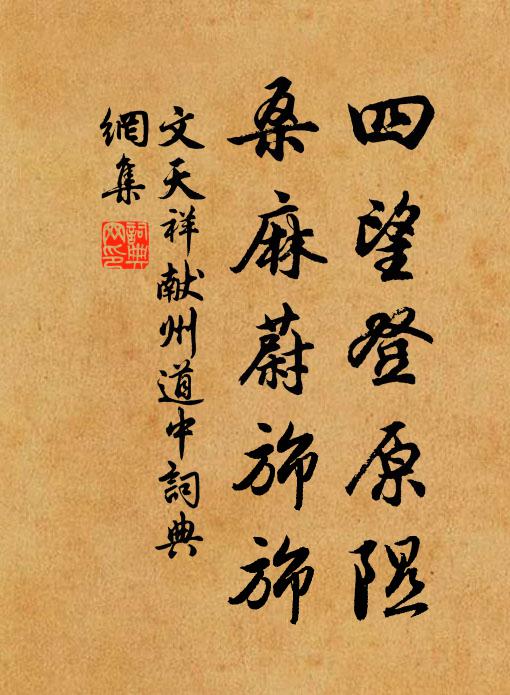 四望登原隰
桑麻蔚旆旆
文天祥献州道中詞典
網集
詞典
网印